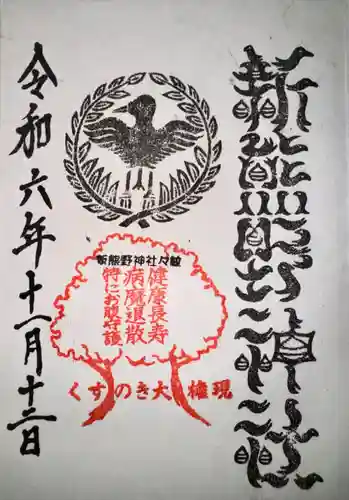 新熊野神社
新熊野神社々紋
健康長寿
病魔退散
特にお腹守護
くすのき大権現
令和六年十一月十二日